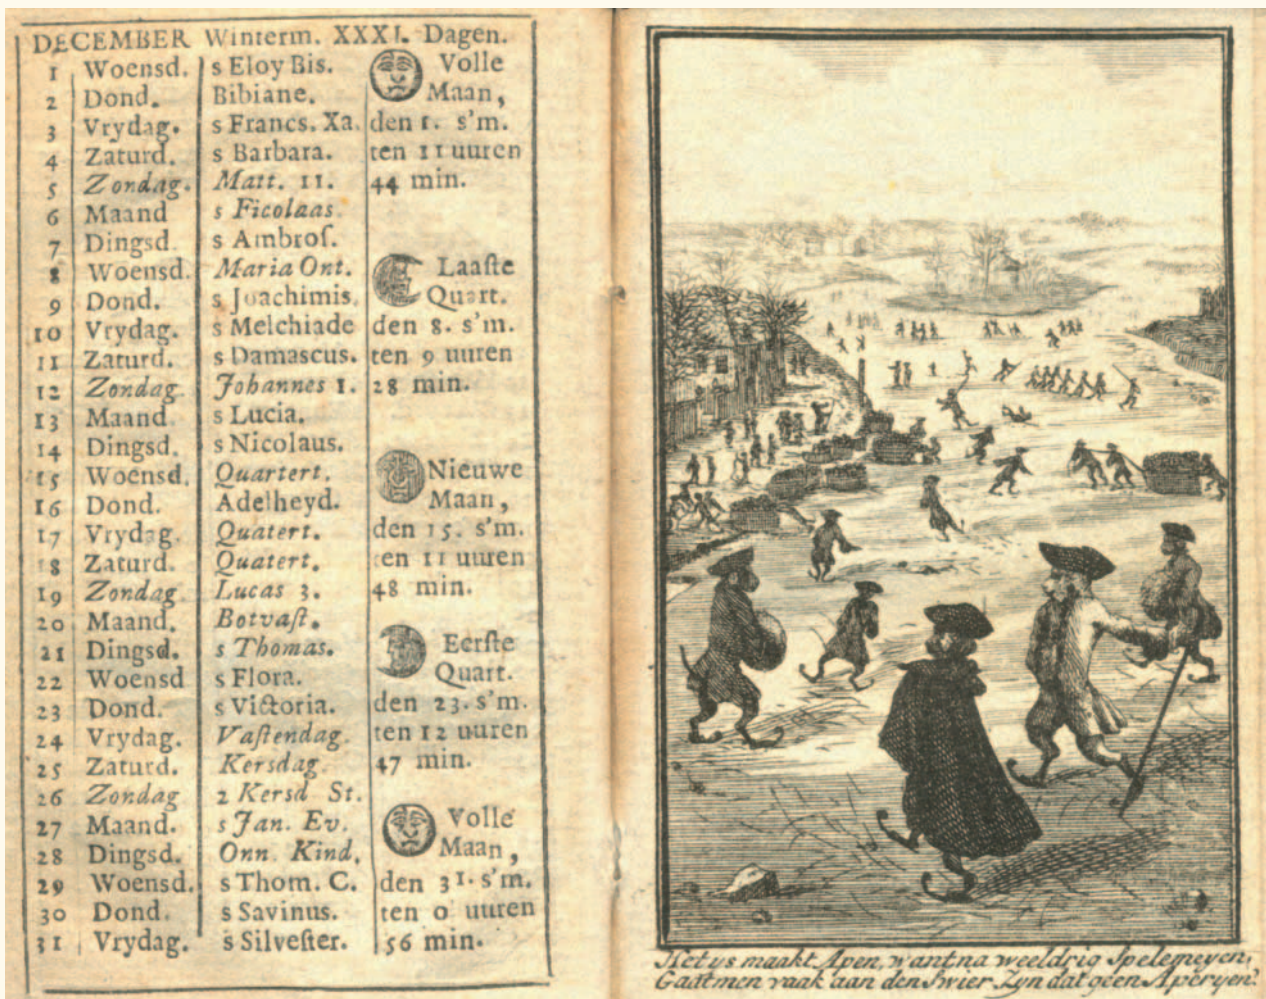 DECEMBER Winterm. XXXI. Dagen.
1 Woensd. s Eloy Bis. Volle
2 Dond. Bibiane. Maan,
3 Vrydag. s Francs. Xa. den 1. s'm.
4 Zaturd. s Barbara. ten 11 uuren
5 Zondag. Matt. 11. 44 min.
6 Maand s Ficolaas
7 Dingsd. s Ambroſ.
8 Woensd. Maria Ont. Laaſte
9 Dond. s Joachimis. Quart.
10 Vrydag. s Melchiade den 8. s'm.
11 Zaturd. s Damascus. ten 9 uuren
12 Zondag Johannes 1. 28 min.
13 Maand s Lucia.
14 Dingsd. s Nicolaus.
15 Woensd. Quartert. Nieuwe
16 Dond. Adelheyd. Maan,
17 Vrydag. Quatert. den 15. s'm.
18 Zaturd. Quatert. ten 11 uuren
19 Zondag Lucas 3. 48 min.
20 Maand. Botvaſt.
21 Dingsd. s Thomas. Eerſte
22 Woensd s Flora. Quart.
23 Dond. s Victoria. den 23. s'm.
24 Vrydag. Vaſtendag. ten 12 uuren
25 Zaturd. Kersdag. 47 min.
26 Zondag 2 Kersd St.
27 Maand. s Jan. Ev. Volle
28 Dingsd. Onn. Kind. Maan,
29 Woensd. s Thom. C. den 31. s'm.
30 Dond. s Savinus. ten 0 uuren
31 Vrydag. s Silveſter. 56 min.
Het ys maakt Apen, want na weeldrig Spelemeyen,
Gaatmen vaak aan den Swier Zyn dat geen Aperyen?